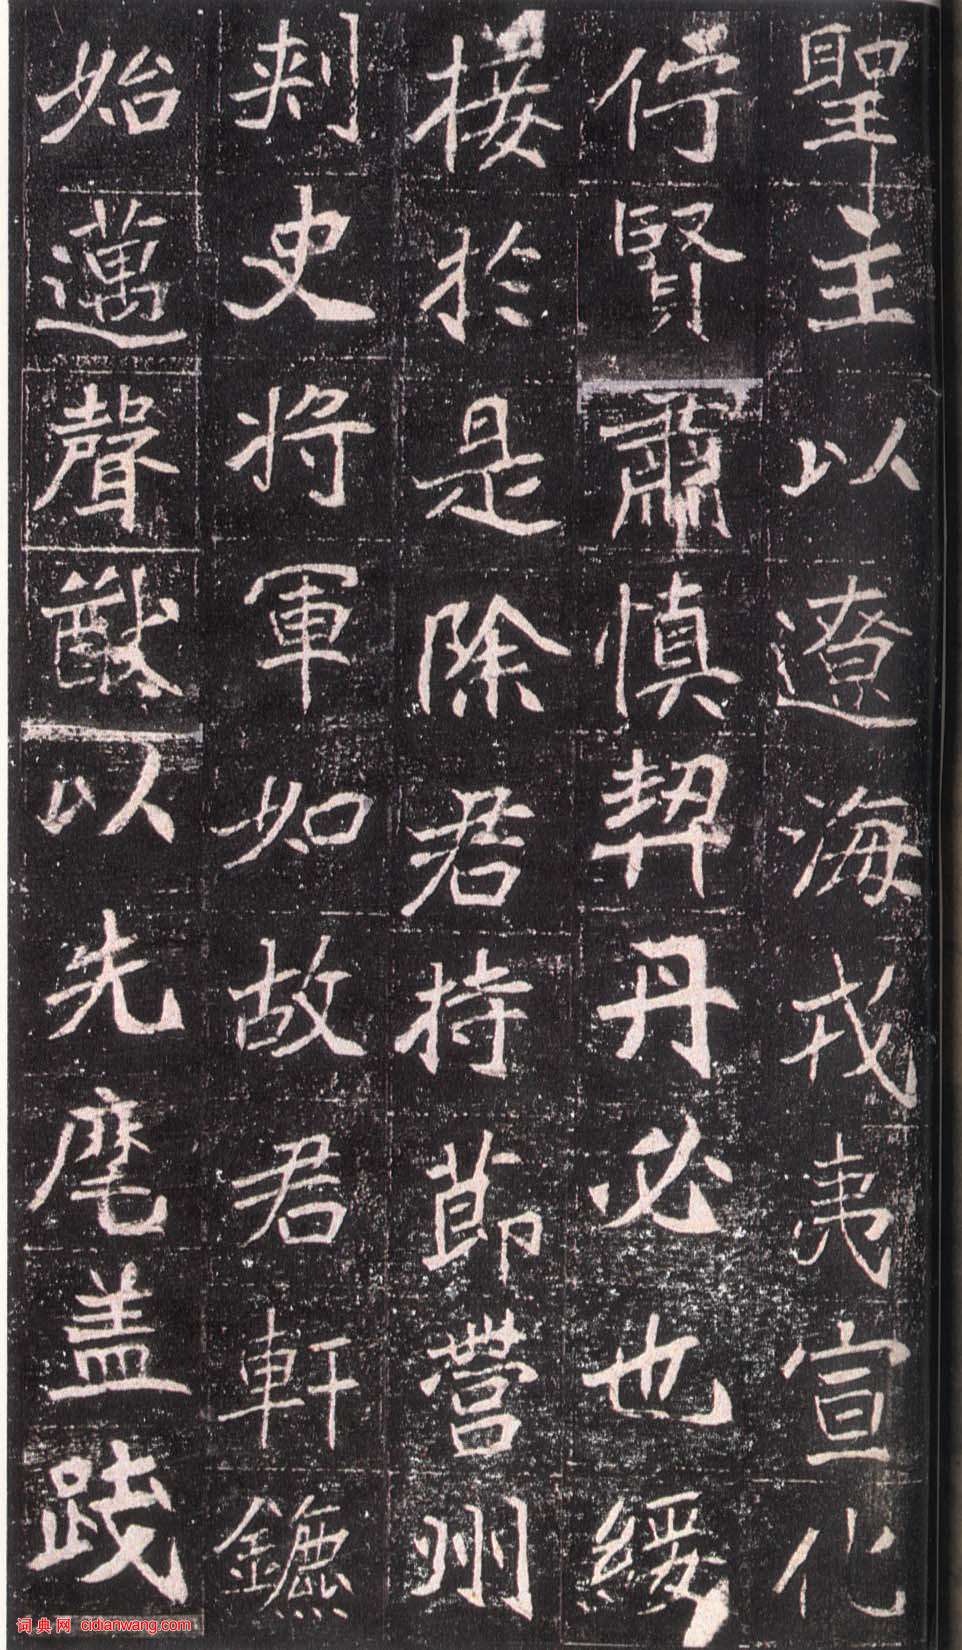 聖主以遼海戎夷宣化
佇賢肅慎契丹必也綏
接於是除君持節營州
刺史將軍如故君軒鑣
始邁聲猷以先麾盖踐
词典网 cidianwang.com